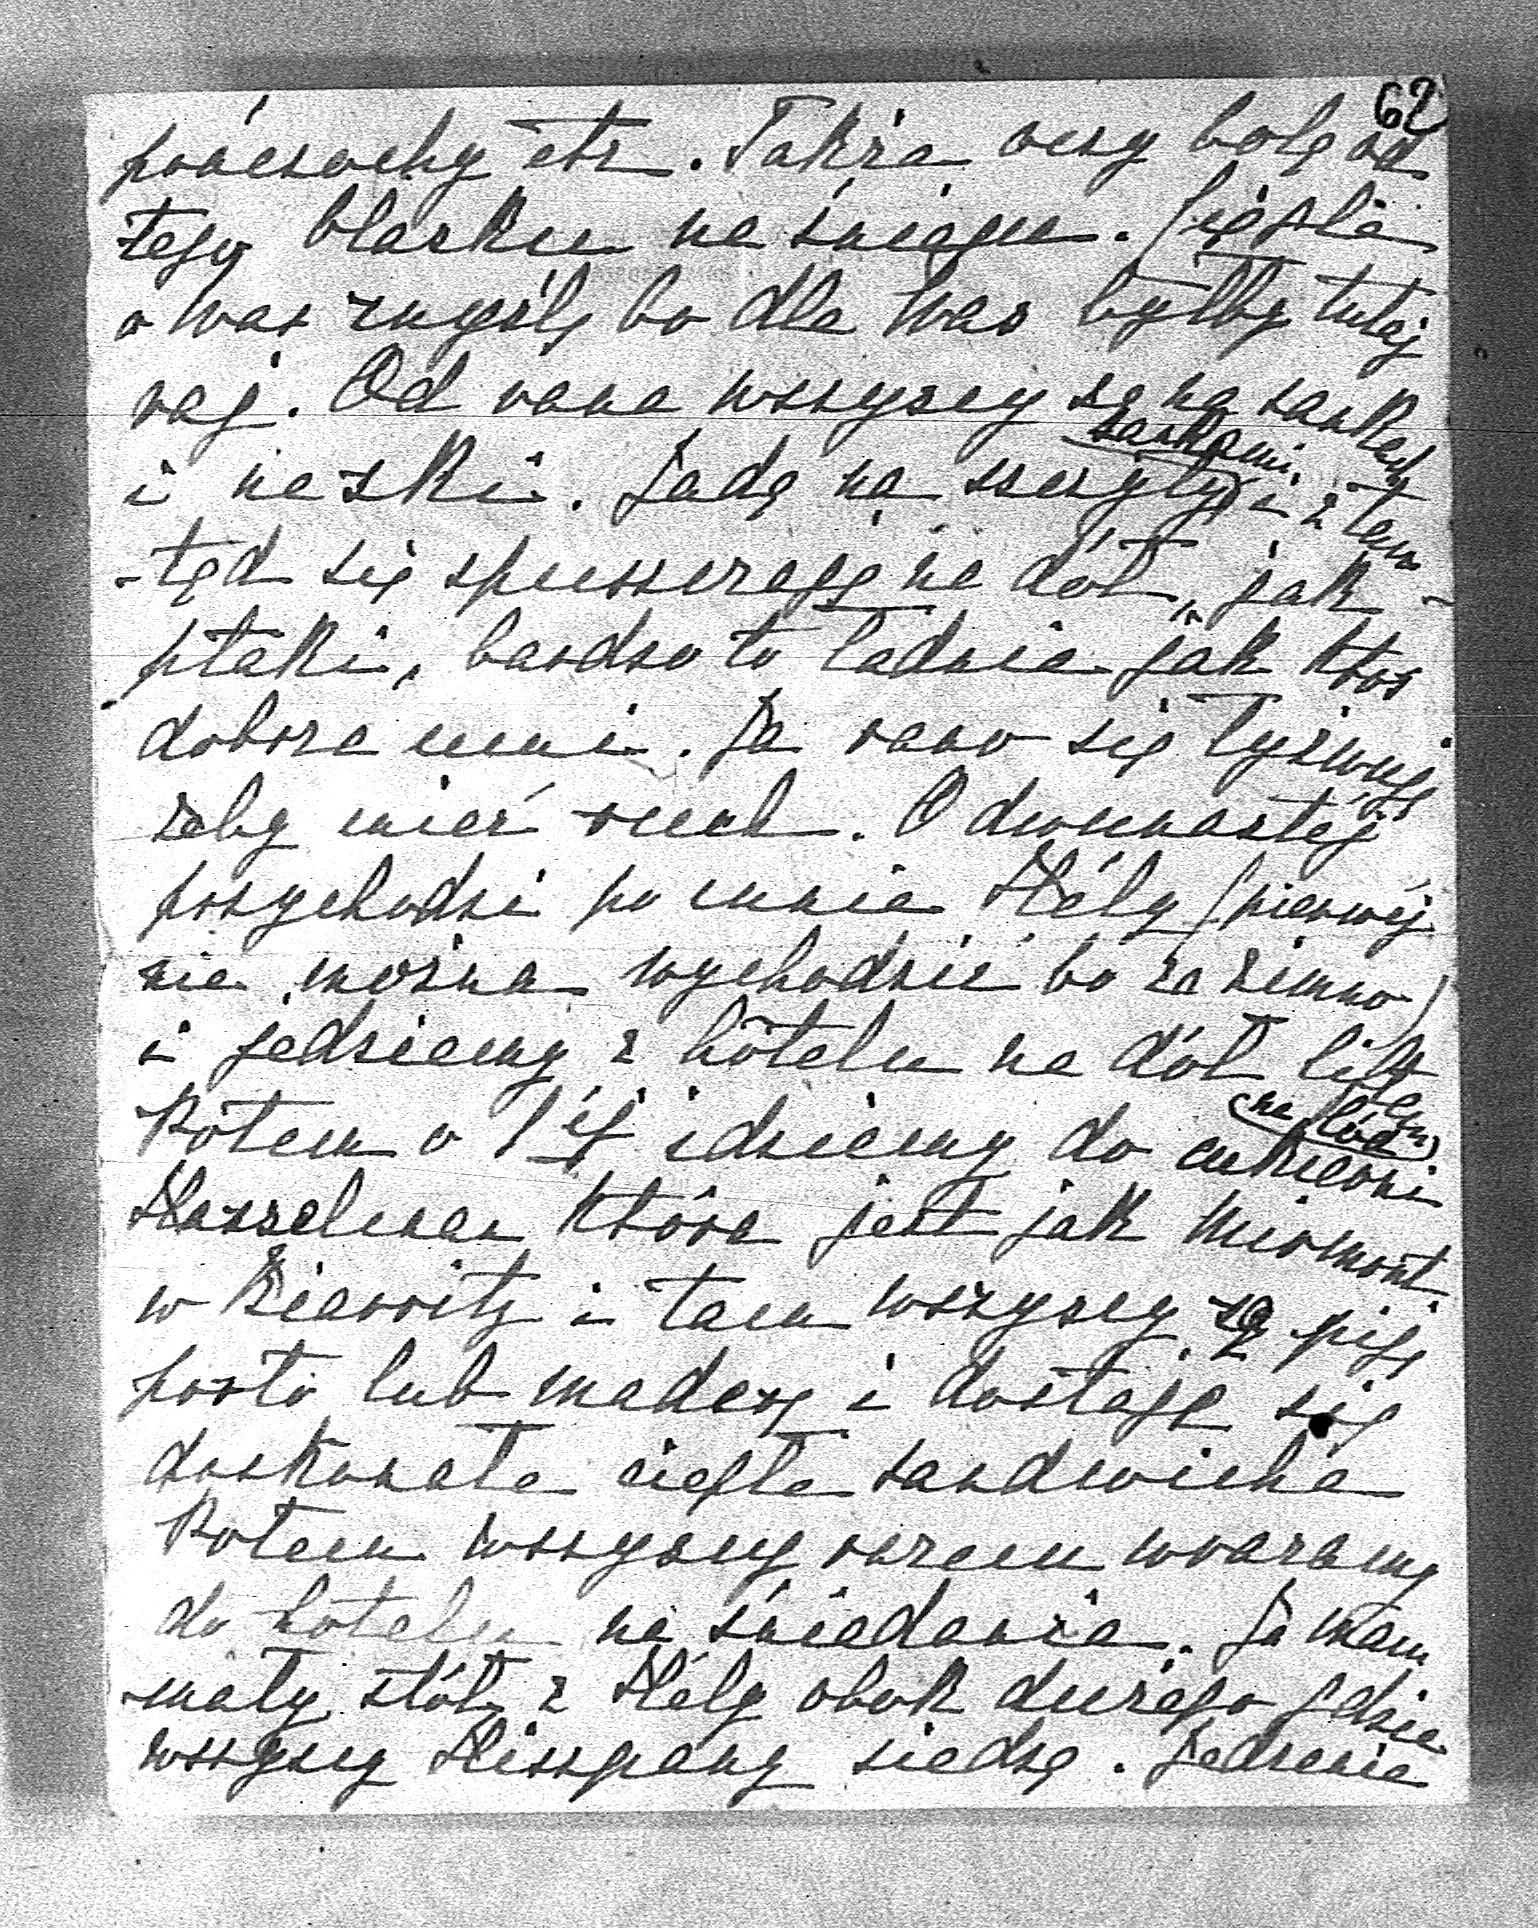 62
pończochy etz. Także oczy bolą od
tego blasku na śniegu. Ciągle
o Was myślę bo dla Was byłby tutaj
raj. Od rana wszyscy są na sankach
i na ski. Jadą na szczyty sankami i z tam-
-tąd się spuszczają na dół, jak-
ptaki, bardzo to ładnie jak ktoś
dobrze umi. Ja rano się łyżwuję
żeby mieć ruch. O dwunastéj
przychodzi po mnie Hély (pierwéj
nie można wychodzić bo za zimno)
i jedziemy z hôtelu na dół liftem (na lód)
Potem o idziemy do cukierni
Hasselman która jest jak Miremont
w Biarritz i tam wszyscy są piją
porto lub maderę i dostaje się
doskonałe ciepłe sandwicha
Potem wszyscy razem wracamy
do hotelu na śniadanie. Ja mam
mały stół z Hély obok dużego gdzie
wszyscy Hiszpany siedzą. Jedzenie